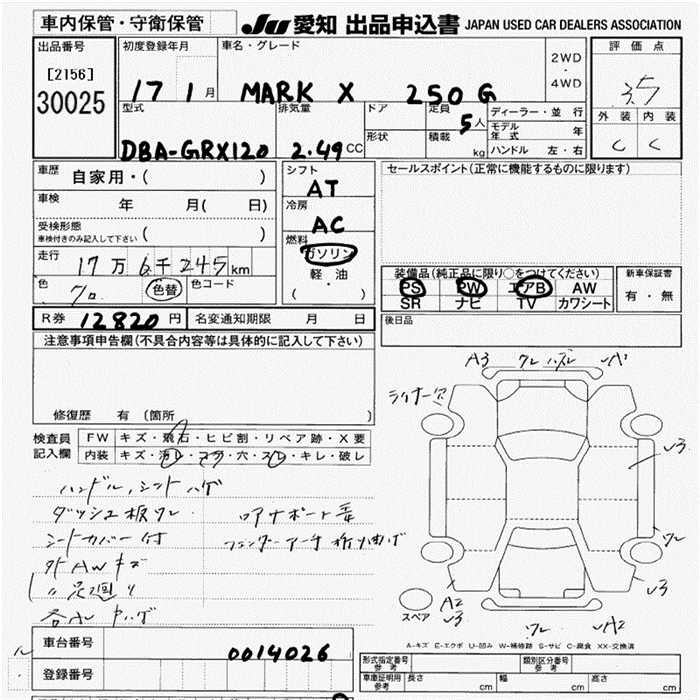 車内保管・守衛保管
JU 愛知 出品申込書 JAPAN USED CAR DEALERS ASSOCIATION
出品番号
[2156]
30025
初度登録年月
17 1 月
車名・グレード
MARK X 250G
2WD
・
4WD
評価点
3.5
外装 内装
C C
型式
DBA-GRX120
排気量
2.49 CC
ドア
形状
定員
5 人
積載
kg
ディーラー・並行
モデル年式 年
ハンドル 左・右
車歴
自家用・( )
車検 年 月( 日)
受検形態
車検付きのみ記入して下さい ( )
走行
17万6千245km
色
クロ 色替
色コード
シフト
AT
冷房
AC
燃料
ガソリン
軽・油
( )
セールスポイント(正常に機能するものに限ります)
装備品(純正品に限り○をつけてください)
PS PW エアB AW
SR ナビ TV カワシート
新車保証書
有・無
R券 12820 円
名変通知期限 月 日
後日品
注意事項申告欄(不具合内容等は具体的に記入して下さい)
修復歴 有 (箇所 )
検査員
記入欄
FW キズ・飛石・ヒビ割・リペア跡・X要
内装 キズ・汚レ・コゲ・穴・スレ・キレ・破レ
ハンドル,シフト ハゲ
ダッシュ板ワレ
シートカバー付
外AWキズ
A3 ワレ ハズレ
ライナー欠
ワレ
A2
スペア
ワレ
A-キズ E-エクボ U-凹み W-補修跡 S-サビ C-腐食 XX-交換済
車台番号
0014026
登録番号
形式指定番号
参考
類別区分番号
参考
車庫証明用
参考
長さ cm
幅 cm
高さ cm